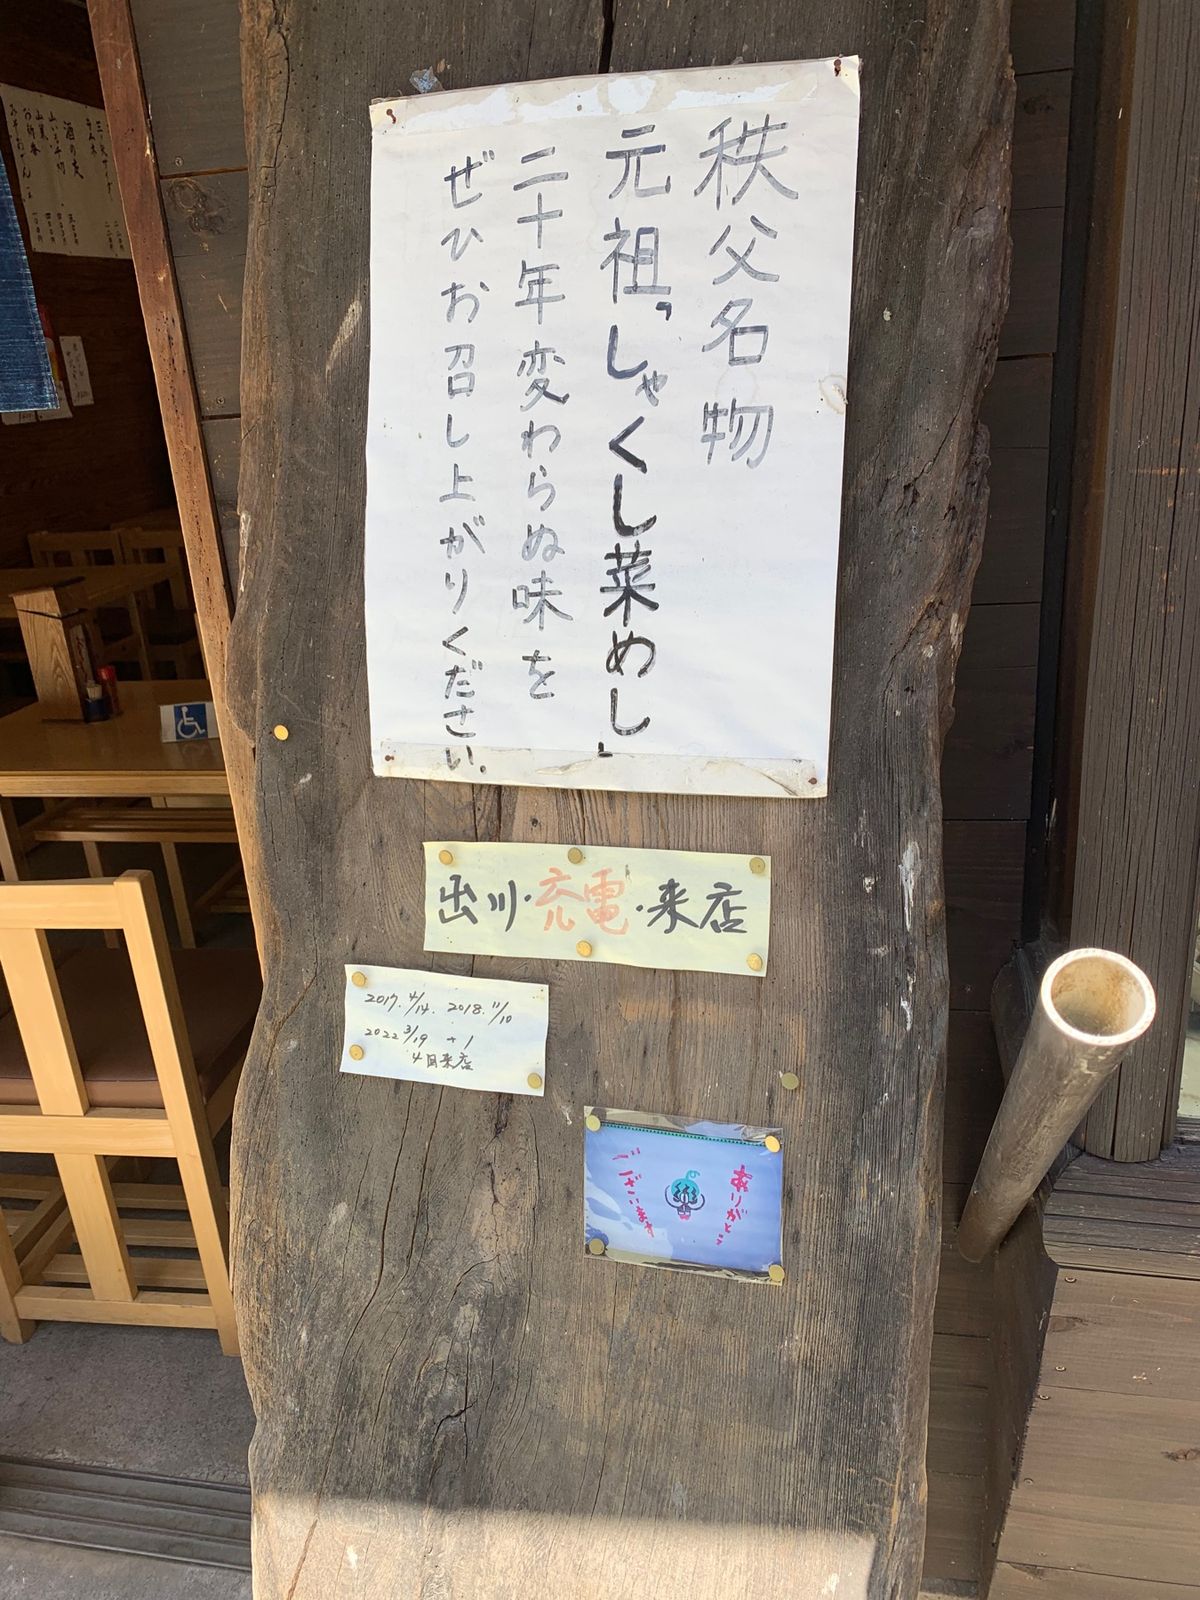 秩父名物
元祖「しゃくし菜めし」
二十年変わらぬ味を
ぜひお召し上がりください。
出川・充電・来店
2017.4/14. 2018.11/10
2022 3/19 +1
4回来店
ありがとう
ございます